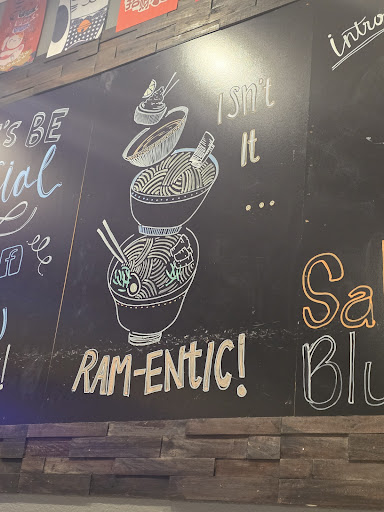 's BE
cial
f
!
Isn't
It
...
RAM-ENtIC!
intro
Sa
Blu